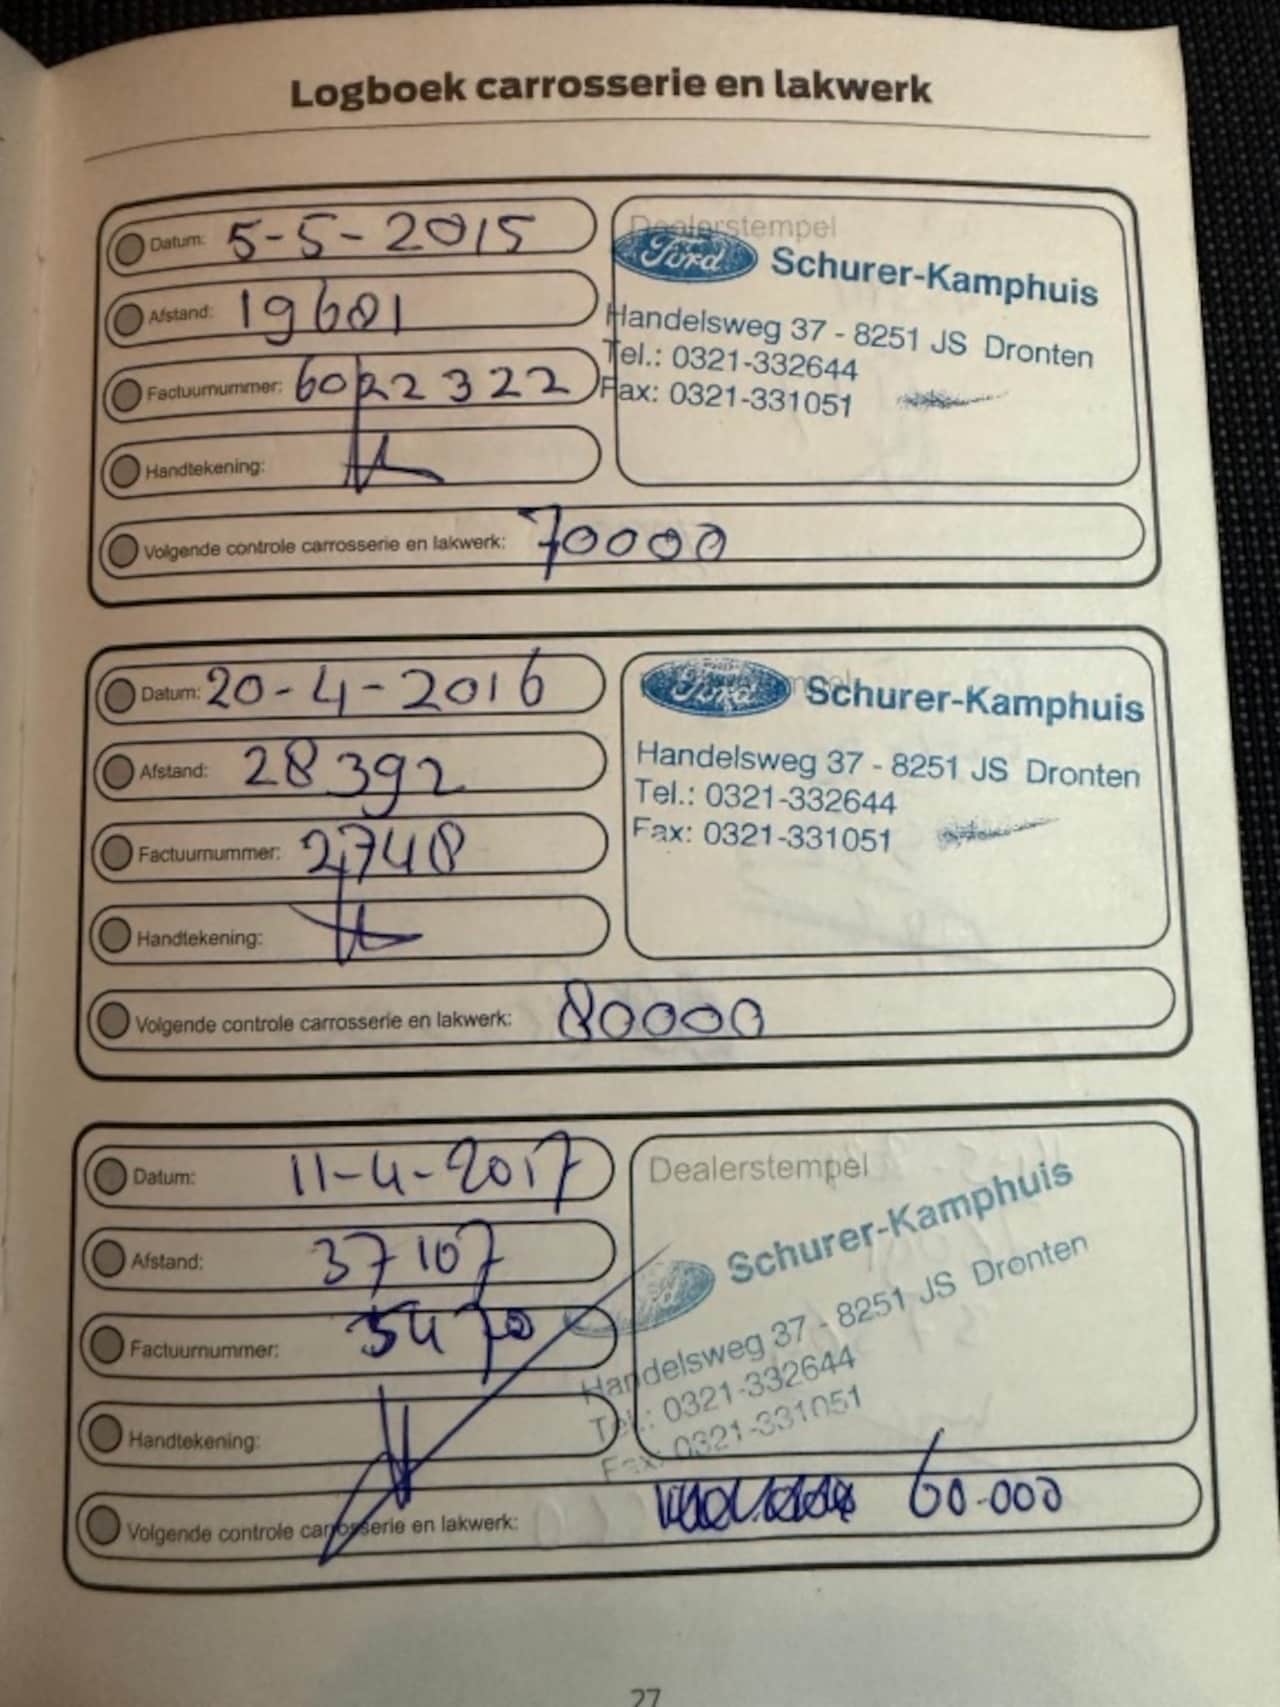 Logboek carrosserie en lakwerk
Datum: 5-5-2015
Afstand: 19601
Factuurnummer: 6022322
Handtekening:
Volgende controle carrosserie en lakwerk: 70000
Dealerstempel
Ford Schurer-Kamphuis
Handelsweg 37 - 8251 JS Dronten
Tel.: 0321-332644
Fax: 0321-331051
Datum: 20-4-2016
Afstand: 28392
Factuurnummer: 2748
Handtekening:
Volgende controle carrosserie en lakwerk: 80000
Ford Schurer-Kamphuis
Handelsweg 37 - 8251 JS Dronten
Tel.: 0321-332644
Fax: 0321-331051
Datum: 11-4-2017
Afstand: 37107
Factuurnummer: 5470
Handtekening:
Volgende controle carrosserie en lakwerk: 60.000
Dealerstempel
Schurer-Kamphuis
Handelsweg 37 - 8251 JS Dronten
Tel.: 0321-332644
Fax: 0321-331051
27